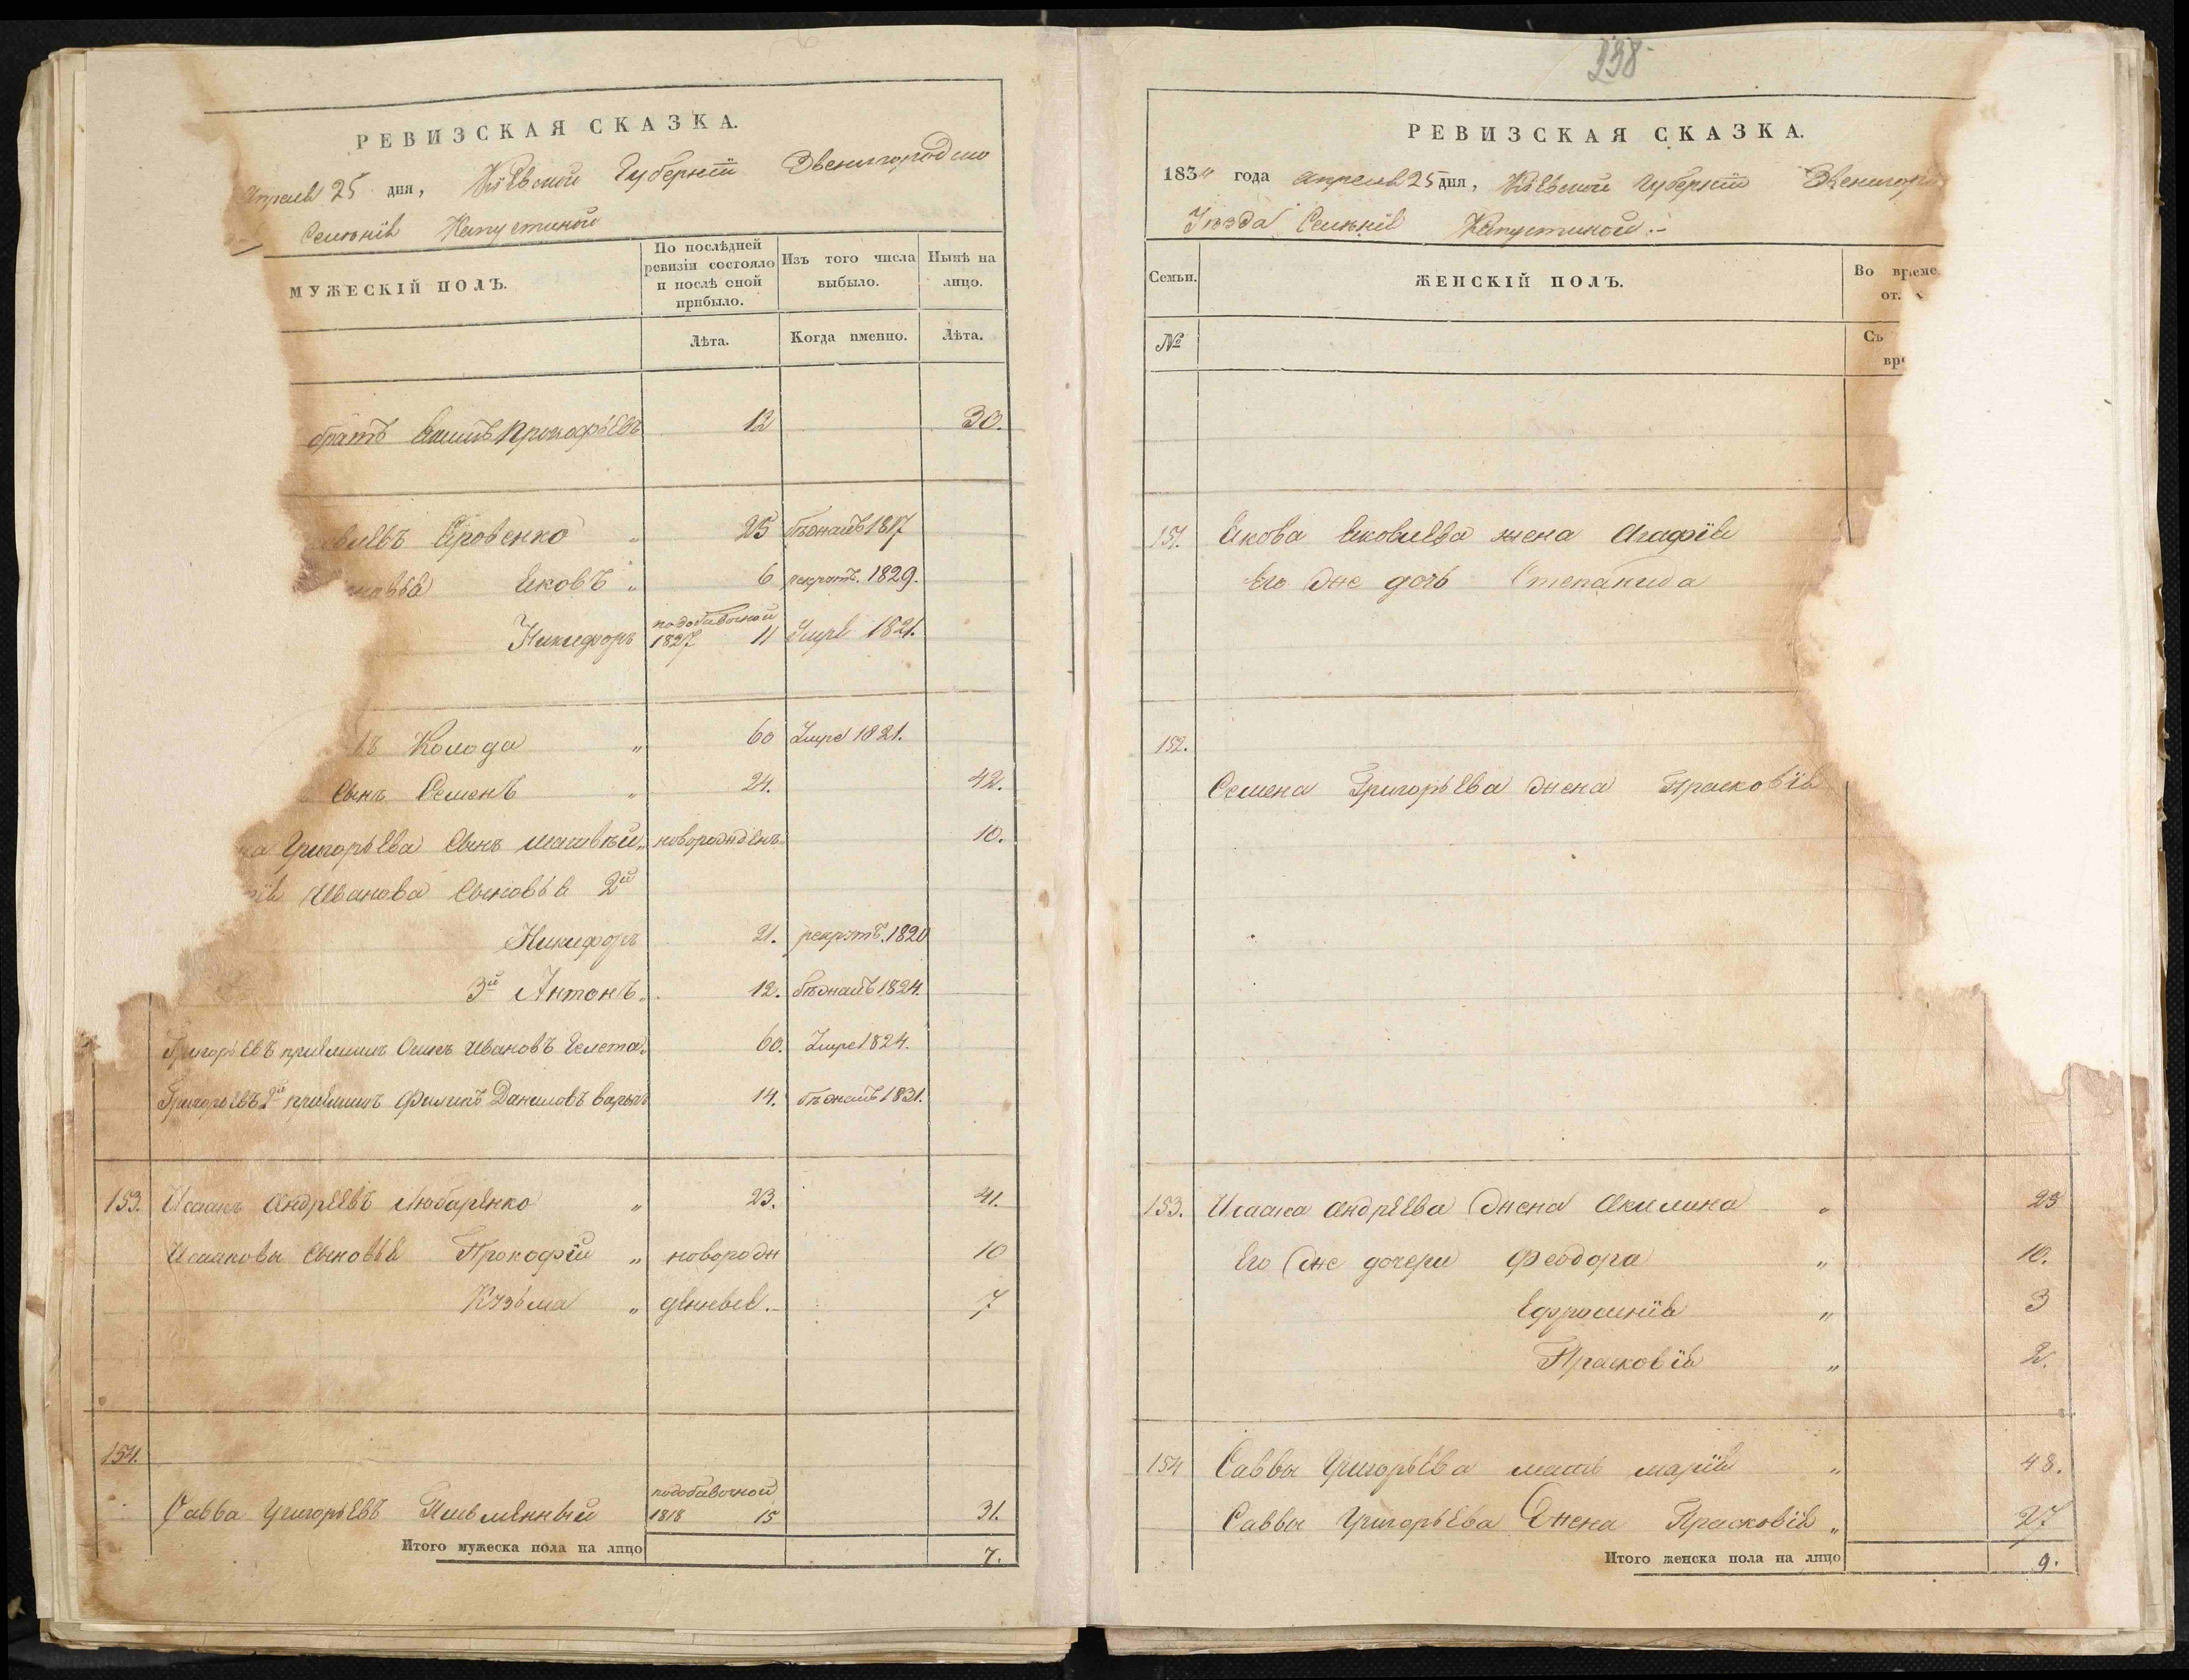 РЕВИЗСКАЯ СКАЗКА.
Апреля 25 дня, Кіевской Губерніи Звенигородско
Селенія Капустиной
МУЖЕСКІЙ ПОЛЪ.
По послѣдней ревизіи состояло и послѣ оной прибыло.
Изъ того числа выбыло.
Нынѣ на лицо.
Лѣта.
Когда именно.
Лѣта.
братъ Прокофьевъ 12 30.
Яровенко „ 25 бѣжалъ 1817
Яковъ „ 6 рекрутъ. 1829.
подобавочной
Никифоръ 1827 11 Умре 1821.
Колода „ 60 Умре 1821.
Сынъ Семенъ „ 24. 42.
Григорьева Сынъ Матвѣй „ новорожденъ 10.
Иванова Сыновья 2й
Никифоръ 21. рекрутъ. 1820
3й Антонъ „ 12. бѣжалъ 1824.
Григорьевъ пріемышъ Осипъ Ивановъ „ 60. Умре 1824.
Григорьевъ 2й пріемышъ Филипъ Даниловъ 14. бѣжалъ 1831.
153. Исаакъ Андреевъ Любаренко „ 23. 41.
Исааковы Сыновья Прокофій „ новорожд 10
Кузьма „ 7
154.
подобавочной
Савва Григорьевъ 1818 15 31.
Итого мужеска пола на лицо 7.
238
РЕВИЗСКАЯ СКАЗКА.
1834 года апреля 25 дня, Кіевской Губерніи Звенигоро
Уѣзда Селенія Капустиной.-
Семьи.
ЖЕНСКІЙ ПОЛЪ.
Во време
от.
№
Съ
вре
151. Якова Яковлева жена Агафія
Его же дочь Степанида
152.
Семена Григорьева жена Прасковія
153. Исаака Андреева жена Акилина „ 25
Его же дочери Феодора „ 10.
Ефросинія „ 3
Прасковія „ 2.
154 Саввы Григорьева мать Марія „ 48.
Саввы Григорьева жена Прасковія „ 27
Итого женска пола на лицо 9.